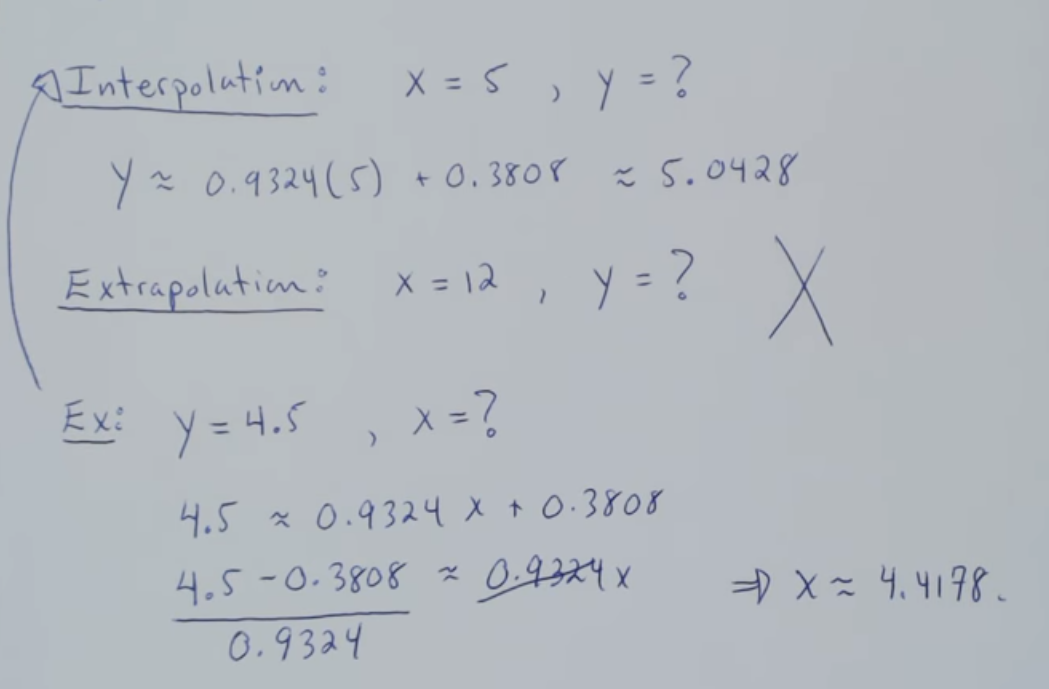 Interpolation: x = 5 , y = ?
y ≈ 0.9324(5) + 0.3808 ≈ 5.0428
Extrapolation: x = 12 , y = ? X
Ex: y = 4.5 , x = ?
4.5 ≈ 0.9324 x + 0.3808
4.5 - 0.3808 ≈ 0.9324 x ⇒ x ≈ 4.4178.
0.9324